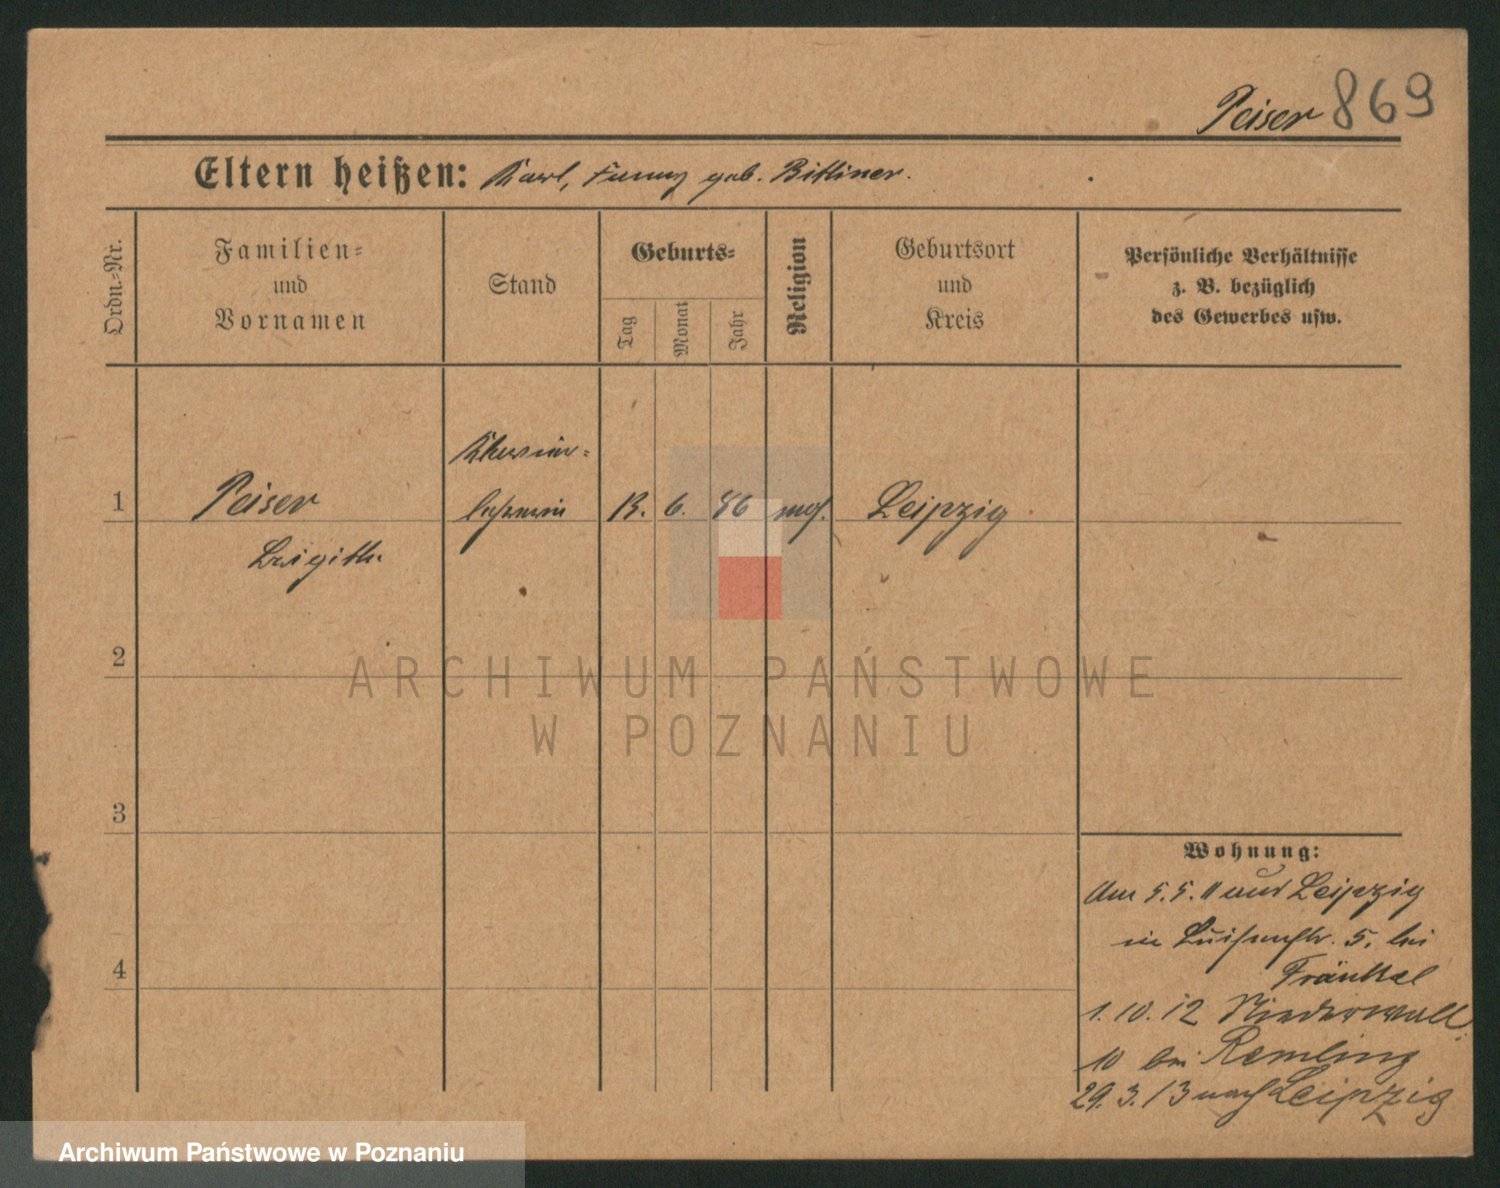 Peiser 869
Eltern heißen: Karl, Fanny geb. Bittiner.
Ordn.=Nr.
Familien=
und
Vornamen
Stand
Geburts=
Tag
Monat
Jahr
Religion
Geburtsort
und
Kreis
Persönliche Verhältnisse
z. B. bezüglich
des Gewerbes usw.
Klavier=
1 Peiser lehrerin 13. 6. 86 mos. Leipzig
Brigitte
2
3
4
Wohnung:
Am 5.5.11 aus Leipzig
in Luisenstr. 5. bei
Fränkel
1.10.12 Niederwall
10 bei Remling
29.3.13 nach Leipzig
ARCHIWUM PAŃSTWOWE
W POZNANIU
Archiwum Państwowe w Poznaniu